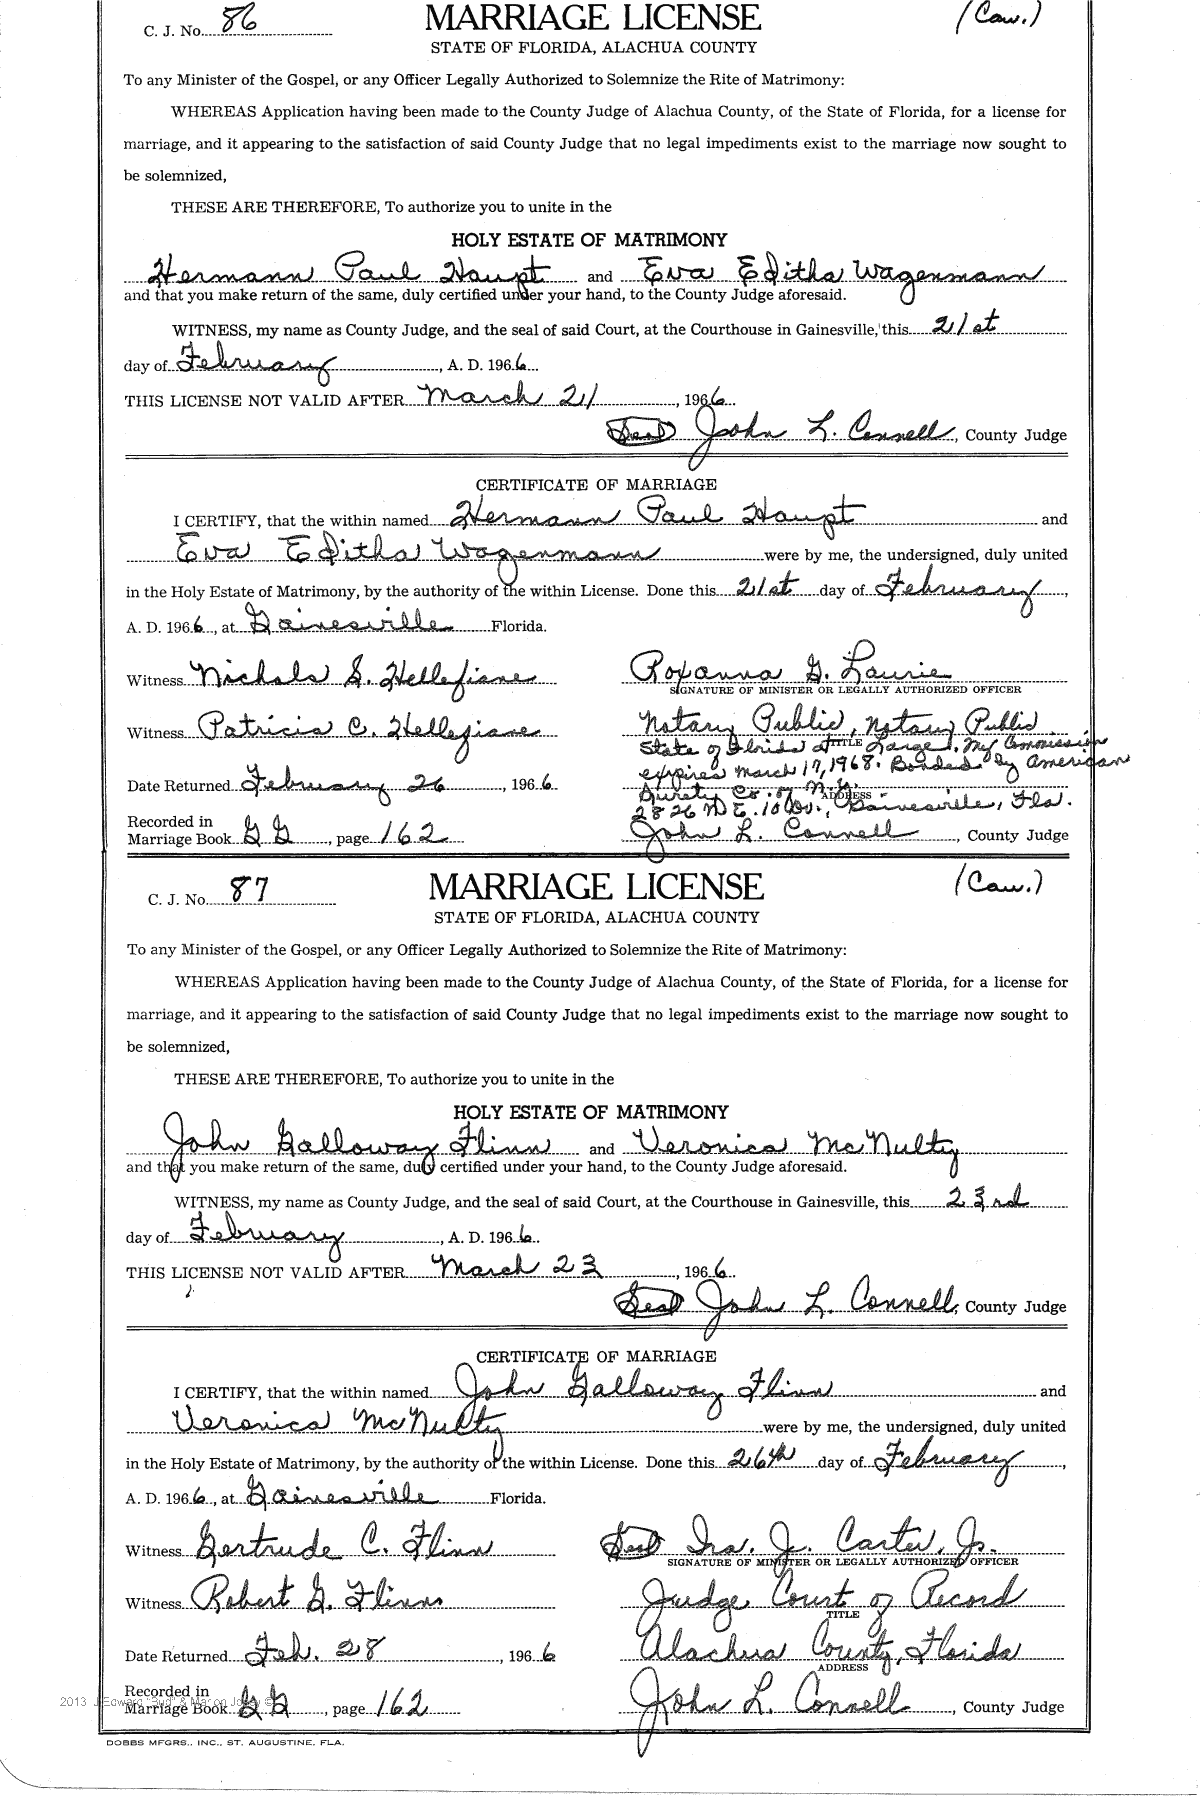 C. J. No. 86 MARRIAGE LICENSE (Cau.)
STATE OF FLORIDA, ALACHUA COUNTY
To any Minister of the Gospel, or any Officer Legally Authorized to Solemnize the Rite of Matrimony:
WHEREAS Application having been made to the County Judge of Alachua County, of the State of Florida, for a license for
marriage, and it appearing to the satisfaction of said County Judge that no legal impediments exist to the marriage now sought to
be solemnized,
THESE ARE THEREFORE, To authorize you to unite in the
HOLY ESTATE OF MATRIMONY
Hermann Paul Haupt and Eva Editha Wagenmann
and that you make return of the same, duly certified under your hand, to the County Judge aforesaid.
WITNESS, my name as County Judge, and the seal of said Court, at the Courthouse in Gainesville, this 21st
day of February, A. D. 1966
THIS LICENSE NOT VALID AFTER March 21, 1966
Seal John L. Connell, County Judge
CERTIFICATE OF MARRIAGE
I CERTIFY, that the within named Hermann Paul Haupt and
Eva Editha Wagenmann were by me, the undersigned, duly united
in the Holy Estate of Matrimony, by the authority of the within License. Done this 21st day of February,
A. D. 1966, at Gainesville Florida.
Witness Nichols S. Hellefiane Roxanna G. Laurie
SIGNATURE OF MINISTER OR LEGALLY AUTHORIZED OFFICER
Witness Patricia C. Hellefiane Notary Public, Notary Public
State of Florida at Large. My Commission
TITLE
expires March 17, 1968. Bonded by American
Date Returned February 26, 1966 Surety Co. of N.Y.
ADDRESS
2826 N E. 10 Gainesville, Fla.
Recorded in
Marriage Book GG, page 162 John L. Connell, County Judge
C. J. No. 87 MARRIAGE LICENSE (Cau.)
STATE OF FLORIDA, ALACHUA COUNTY
To any Minister of the Gospel, or any Officer Legally Authorized to Solemnize the Rite of Matrimony:
WHEREAS Application having been made to the County Judge of Alachua County, of the State of Florida, for a license for
marriage, and it appearing to the satisfaction of said County Judge that no legal impediments exist to the marriage now sought to
be solemnized,
THESE ARE THEREFORE, To authorize you to unite in the
HOLY ESTATE OF MATRIMONY
John Galloway Flinn and Veronica McNulty
and that you make return of the same, duly certified under your hand, to the County Judge aforesaid.
WITNESS, my name as County Judge, and the seal of said Court, at the Courthouse in Gainesville, this 23rd
day of February, A. D. 1966
THIS LICENSE NOT VALID AFTER March 23, 1966
Seal John L. Connell, County Judge
CERTIFICATE OF MARRIAGE
I CERTIFY, that the within named John Galloway Flinn and
Veronica McNulty were by me, the undersigned, duly united
in the Holy Estate of Matrimony, by the authority of the within License. Done this 26th day of February,
A. D. 1966, at Gainesville Florida.
Witness Gertrude C. Flinn Seal Ira. J. Carter, Jr.
SIGNATURE OF MINISTER OR LEGALLY AUTHORIZED OFFICER
Witness Robert G. Flinn Judge Court of Record
TITLE
Date Returned Feb. 28, 1966 Alachua County, Florida
ADDRESS
Recorded in
Marriage Book GG, page 162 John L. Connell, County Judge
DOBBS MFGRS., INC., ST. AUGUSTINE, FLA.